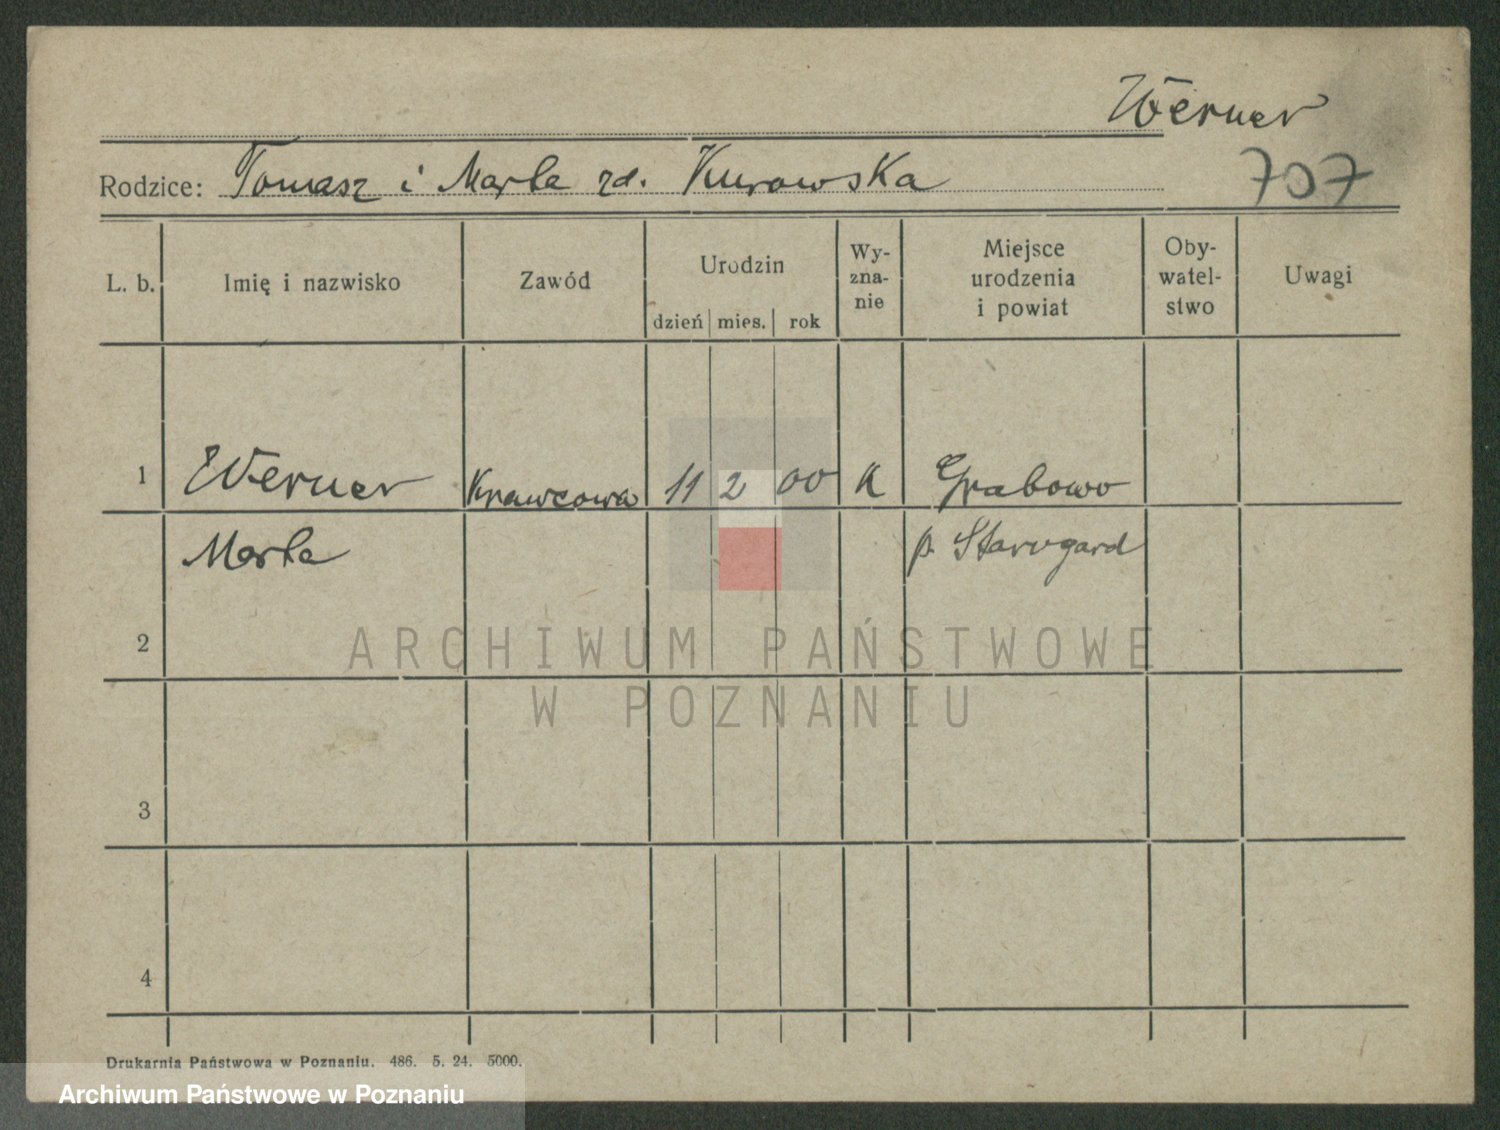 Werner
Rodzice: Tomasz i Marta zd. Kurowska
707
L. b. Imię i nazwisko Zawód Urodzin dzień mies. rok Wy-zna-nie Miejsce urodzenia i powiat Oby-watel-stwo Uwagi
1 Werner Krawcowa 11 2 00 K Grabowo
Marta p. Starogard
2
ARCHIWUM PAŃSTWOWE
W POZNANIU
3
4
Drukarnia Państwowa w Poznaniu. 486. 5. 24. 5000.
Archiwum Państwowe w Poznaniu